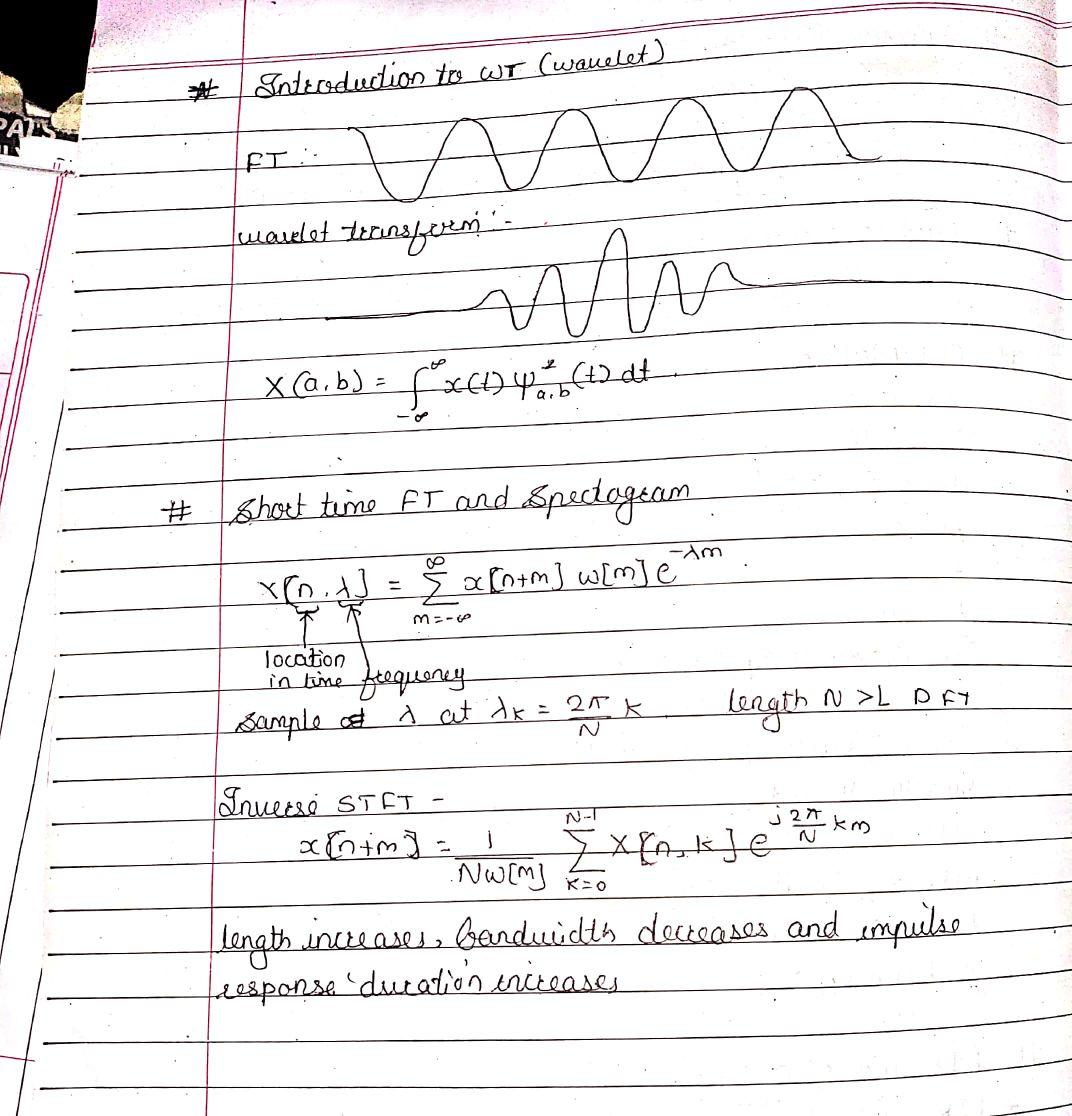 # Introduction to WT (wavelet)
FT :-
wavelet transform :-
X(a,b) = ∫_{-∞}^{∞} x(t) ψ^{*}_{a,b}(t) dt
# Short time FT and Spectogram
X[n,λ] = Σ_{m=-∞}^{∞} x[n+m] w[m] e^{-λm}
location
in time frequency
sample of λ at λk = 2π/N k length N >L DFT
Inverse STFT -
x[n+m] = 1/(Nw[m]) Σ_{k=0}^{N-1} X[n,k] e^{j 2π/N km}
length increases, bandwidth decreases and impulse
response duration increases